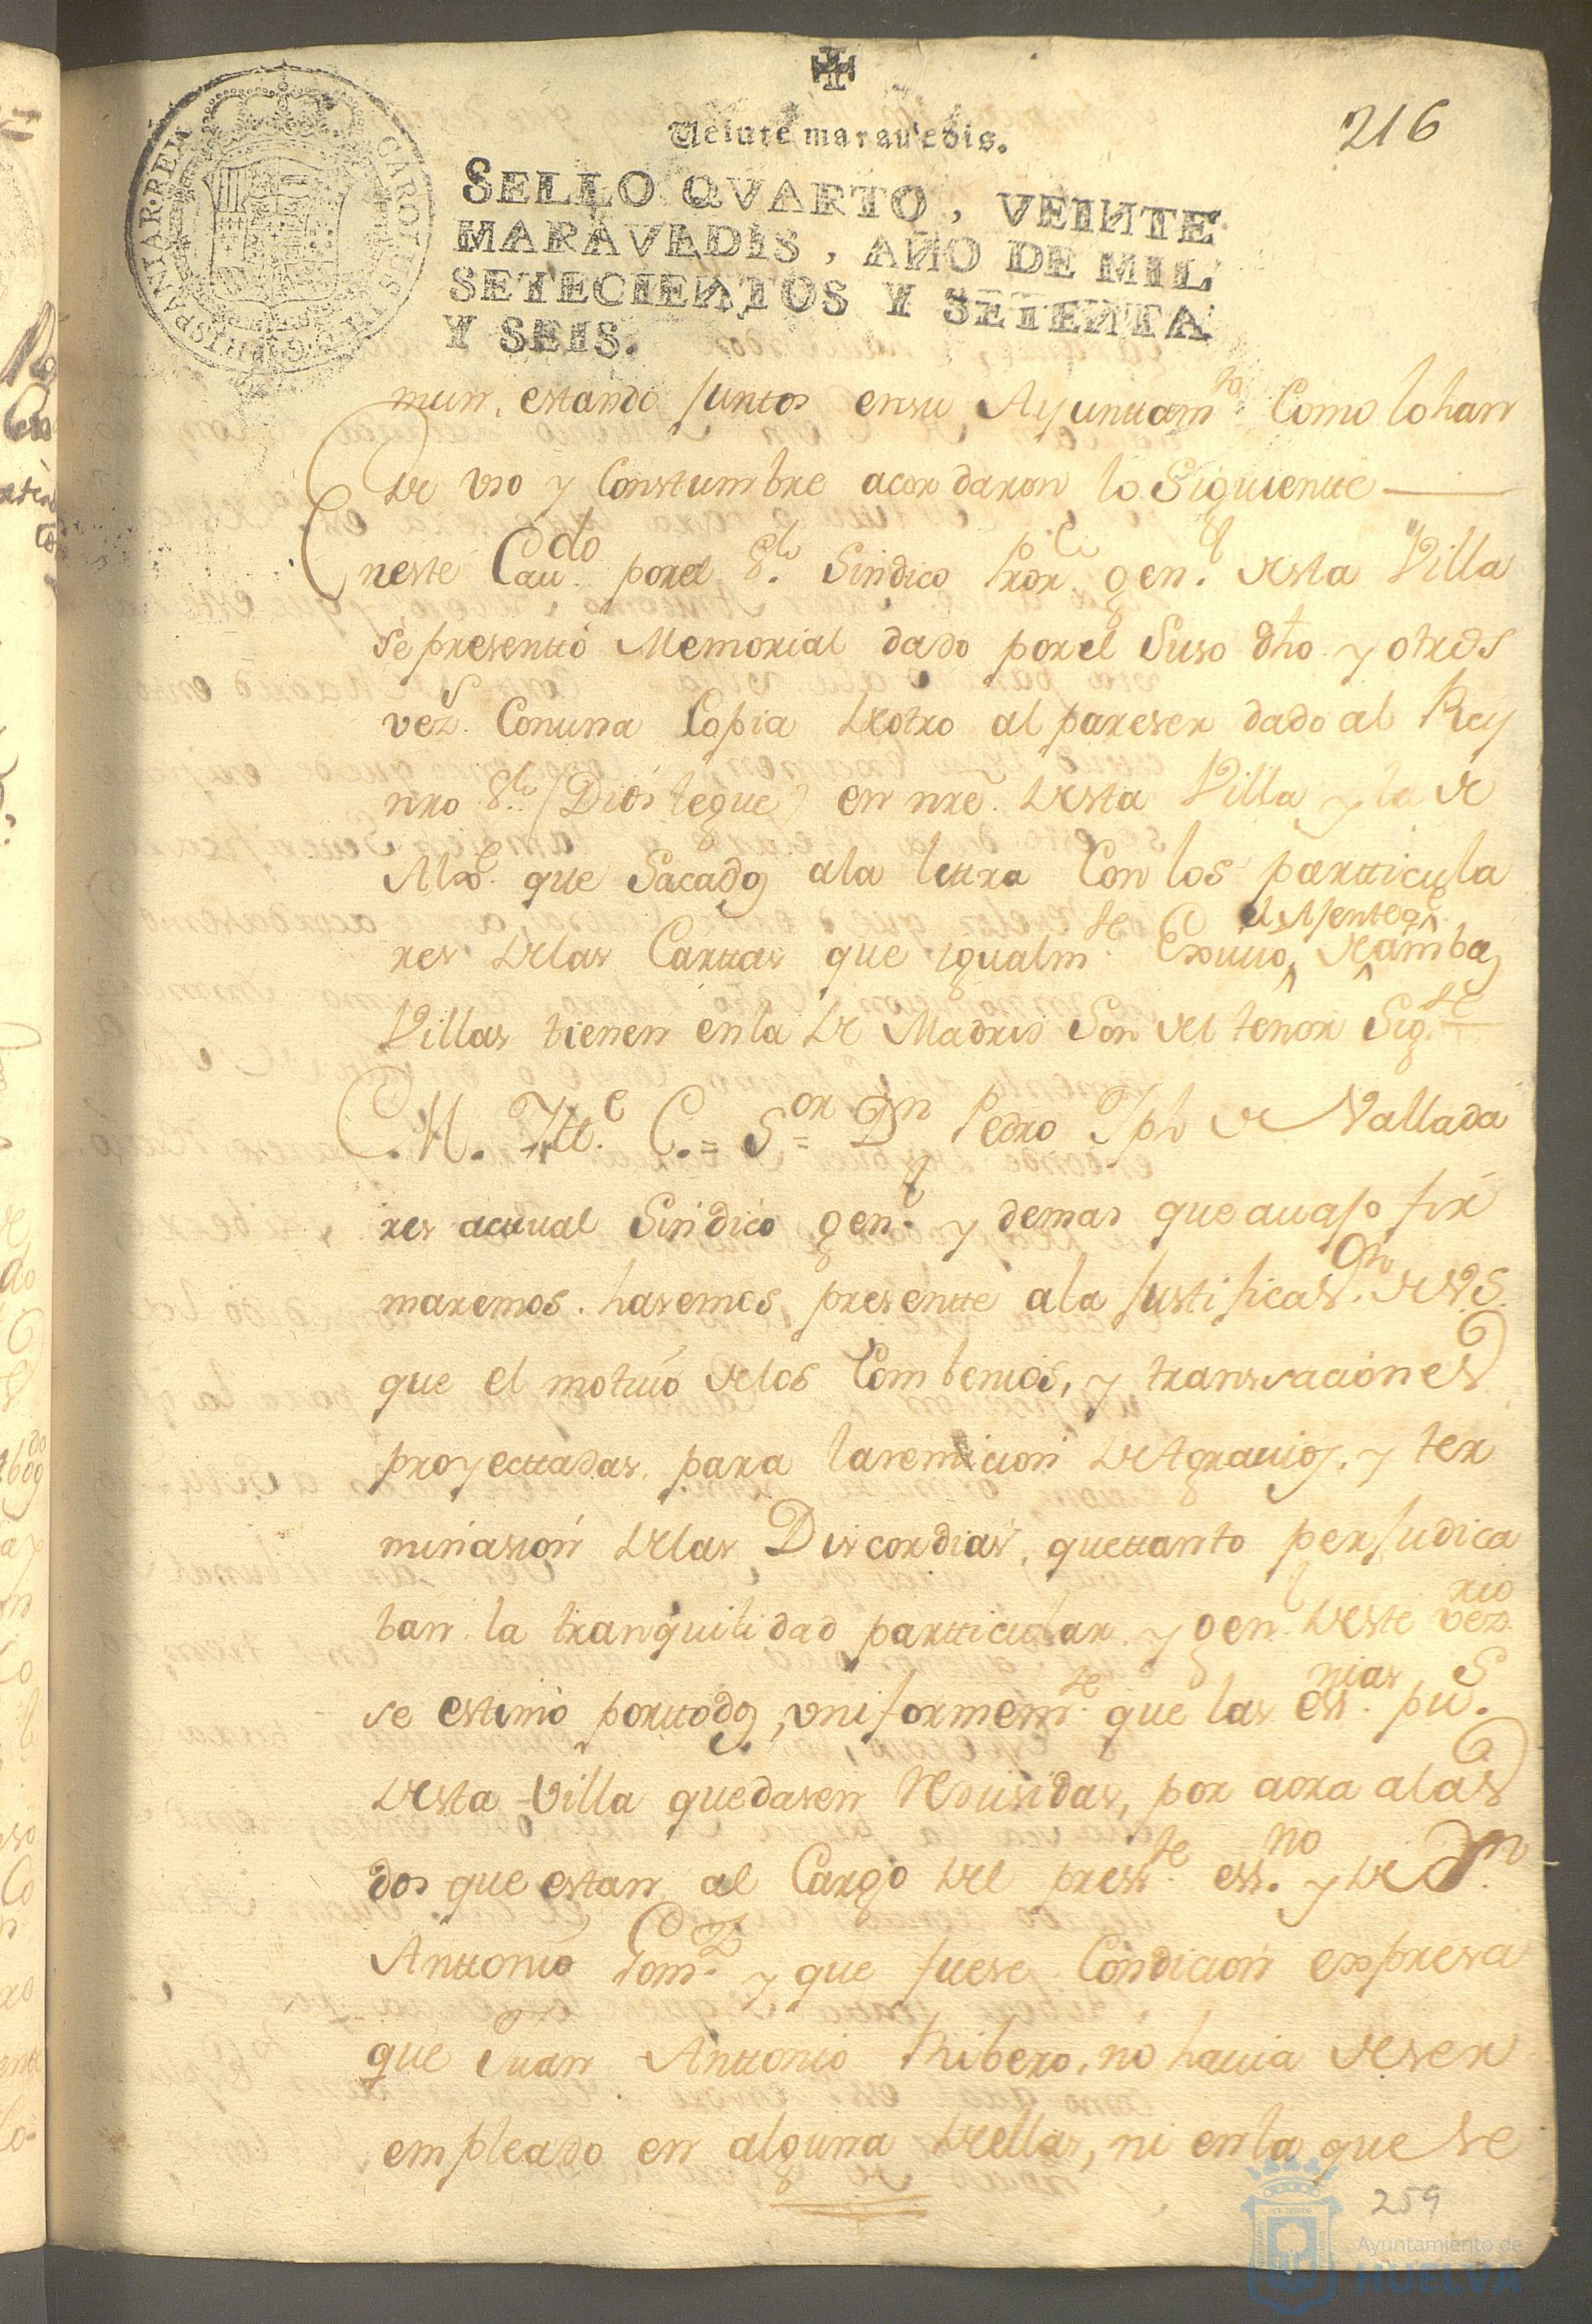 216
Veinte maravedis.
SELLO QVARTO, VEINTE
MARAVEDIS, AÑO DE MIL
SETECIENTOS Y SETENTA
Y SEIS.
CAROLUS III D. G. HISPANIAR. REX
mun, estando juntos ensu Ayunttam.to Como lohan
de vso y Constumbre acordaron lo Siguiente
Eneste Cau.do porel S.or Sindico Pror. gen.l desta Villa
se presenttó Memorial dado porel Suso dho y otros
vez.s Conuna Copia deotro al pareser dado al Rey
nro S.or (Dios legue) en nre. desta Villa y la de
que Sacados ala lettra Con los partticula
res delas Carttas que igualm.te Exiuio, el Ajente qe. de ambas
Villas tienen enla de Madrid Son del tenor Sig.te
C. M. Ytt.e C. = S.or D.n Pedro Jph de Vallada
res acttual Sindico gen.l y demas que auajo fir
maremos. hasemos presentte ala justificas.on de VS.
que el motiuo delos Combenios, y transacciones
proyecttadas. para laremicion de Agrauios. y ter
minasion delas Discordias, quettanto perjudica
ban la tranquilidad partticular y gen.l deste vez.rio
se estimó porttodos, vniformem.te que las ess.nias pu.s
desta Villa quedasen Redusidas, por aora alas
dos que estan al Cargo del press.te ess.no y de D.n
Anttonio Gom.z y que fuese Condicion expresa
que Juan Anttonio Ribero, no hauia deser
empleado en alguna dellas, ni enla que se
259
Ayuntamiento de
HUELVA